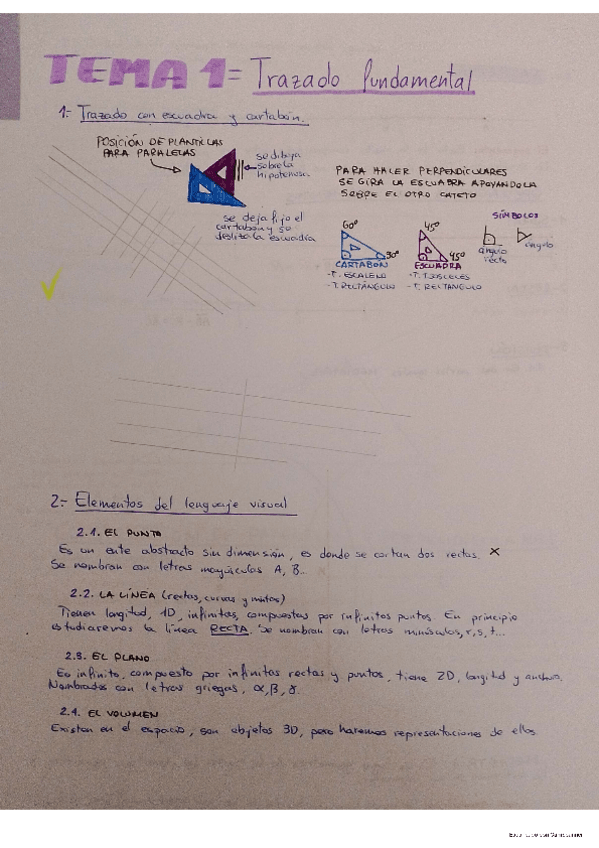 TEMA 1= Trazado fundamental
1.- Trazado con escuadra y cartabón.
POSICIÓN DE PLANTILLAS
PARA PARALELAS
se dibuja
sobre la
hipotenusa
se deja fijo el
cartabón y se
desliza la escuadra
PARA HACER PERPENDICULARES
SE GIRA LA ESCUADRA APOYANDOLA
SOBRE EL OTRO CATETO
60º
30º
CARTABÓN
-T. ESCALENO
-T. RECTÁNGULO
45º
45º
ESCUADRA
-T. ISÓSCELES
-T. RECTANGULO
SÍMBOLOS
ángulo
recto
ángulo
2.- Elementos del lenguaje visual
2.1. EL PUNTO
Es un ente abstracto sin dimensión, es donde se cortan dos rectas. ×
Se nombran con letras mayúsculas A, B..
2.2. LA LÍNEA (rectas, curvas y mixtas)
Tienen longitud, 1D, infinitas, compuestas por infinitos puntos. En principio
estudiaremos la línea RECTA. Se nombran con letras minúsculas, r, s, t...
2.3. EL PLANO
Es infinito, compuesto por infinitas rectas y puntos, tiene 2D, longitud y anchura.
Nombrados con letras griegas, α, β, γ.
2.4. EL VOLUMEN
Existen en el espacio, son objetos 3D, pero haremos representaciones de ellos